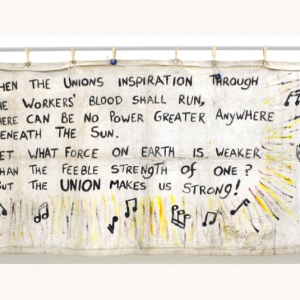 HEN THE UNIONS INSPIRATION THROUGH
HE WORKERS' BLOOD SHALL RUN,
HERE CAN BE NO POWER GREATER ANYWHERE
ENEATH THE SUN.
ET WHAT FORCE ON EARTH IS WEAKER
HAN THE FEEBLE STRENGTH OF ONE?
BUT THE UNION MAKES US STRONG!